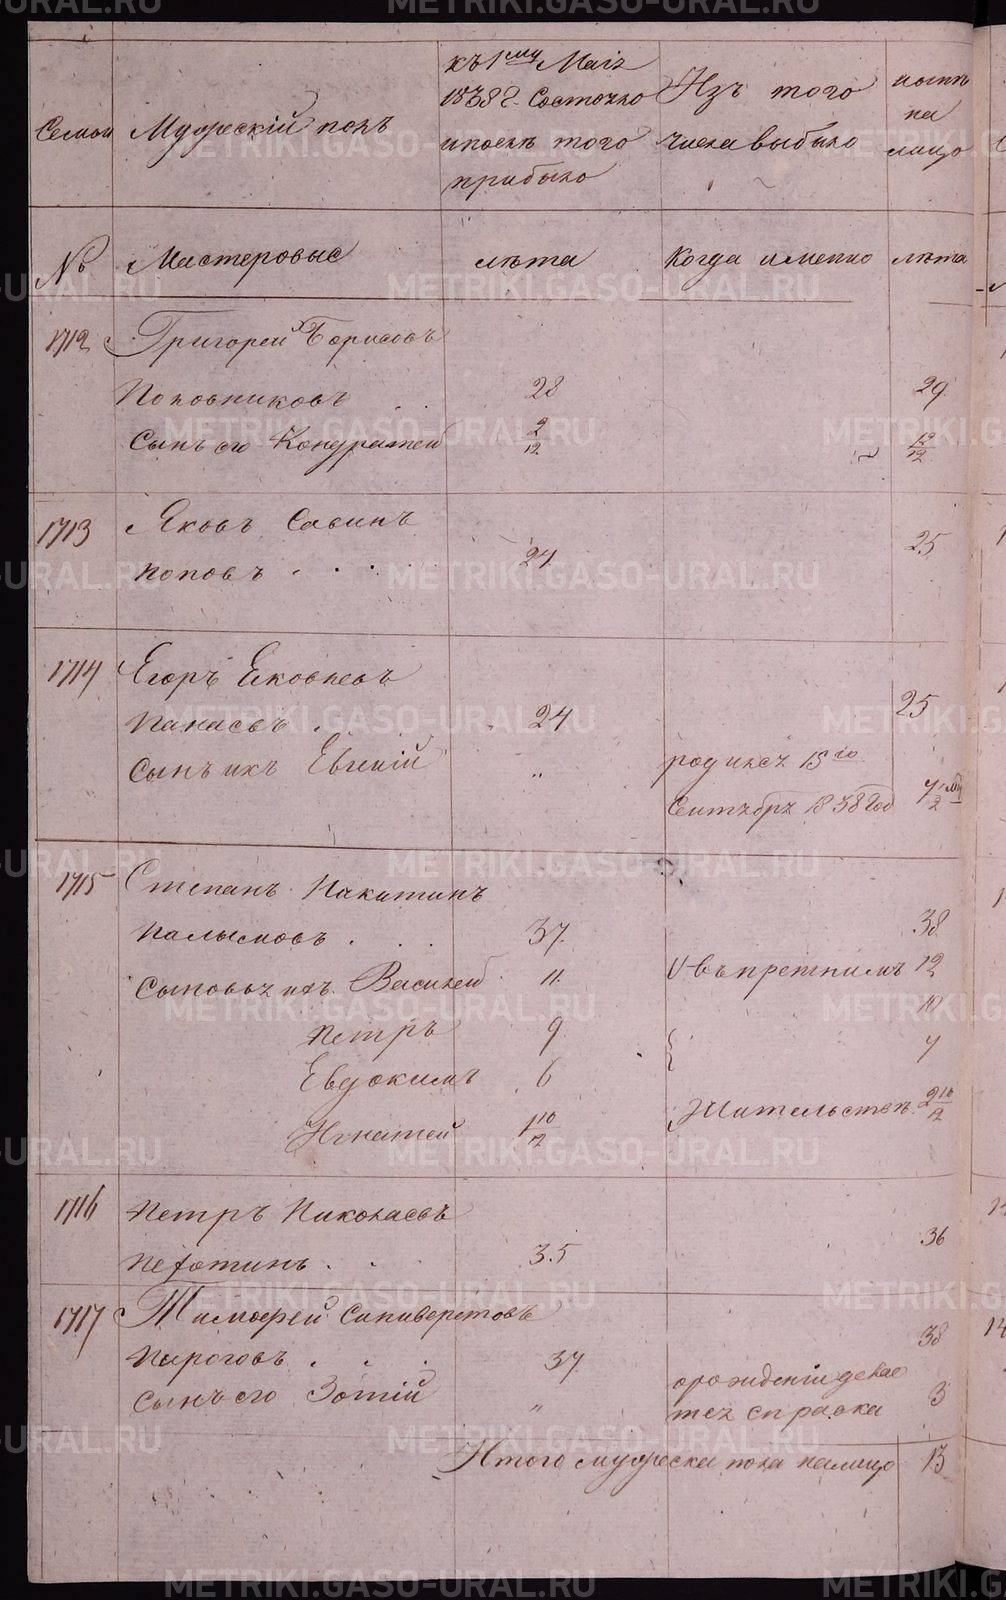 Семьи
Мужескій полъ
къ 1му Маія
1838 г. Состояло
и послѣ того
прибыло
Изъ того
числа выбыло
нынѣ
на
лицо
№
Мастеровые
лѣта
Когда именно
лѣта
1712 Григорей Борисовъ
Половниковъ 28 29
Сынъ его Кондратей 2/12 12/12
1713 Яковъ Савинъ
Поповъ . . . . 24 25
1714 Егоръ Яковлевъ
Панаевъ . . 24 25
Сынъ ихъ Евгеній " родился 15го
Сентября 1838 год 7/12
1715 Степанъ Никитинъ
Палымовъ . . . 37 38
Сыновья ихъ Василей 11 въ прежнимъ 12
Петръ 9 10
Евдокимъ 6 7
Игнатей 1 10/12 Жительствѣ 2 10/12
1716 Петръ Николаевъ
Пелотинъ . . 35 36
1717 Тимофей Селиверстовъ
Пироговъ . . . 37 38
Сынъ его Зотій " о рожденіи делае
тся справка 3
Итого мужеска пола налицо 13
METRIKI.GASO-URAL.RU